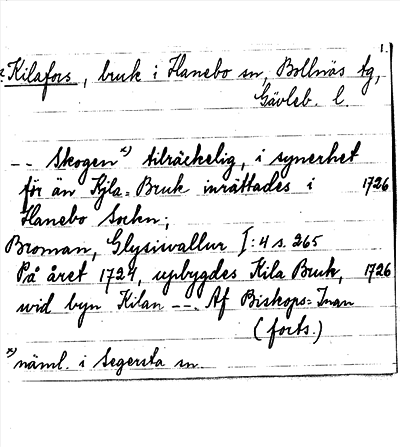 1.
Kilafors, bruk i Hanebo sn, Bollnäs tg,
Gävleb. l.
-- Skogen x) tilräckelig, i synerhet
för än Kjla=Bruk inrättades i 1726
Hanebo Sockn;
Broman, Glysisvallur I:4 s. 265
På året 1724, upbygdes Kila Bruk, 1726
wid byn Kilan --. Af Biskops=
(forts.)
x) näml. i Segersta sn.